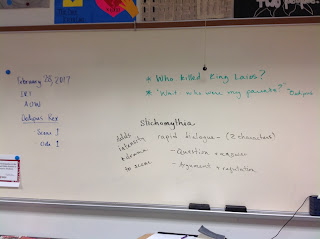 February 28, 2017
IRJ
AOW
Oedipus Rex
Scene ↑
Ode ↑
* Who killed King Laius?
* "Wait, who were my parents?" - Oedipus
Stichomythia
rapid dialogue - (2 characters)
- Question + answer
- Argument + refutation
Adds
intensity
+ drama
to scene